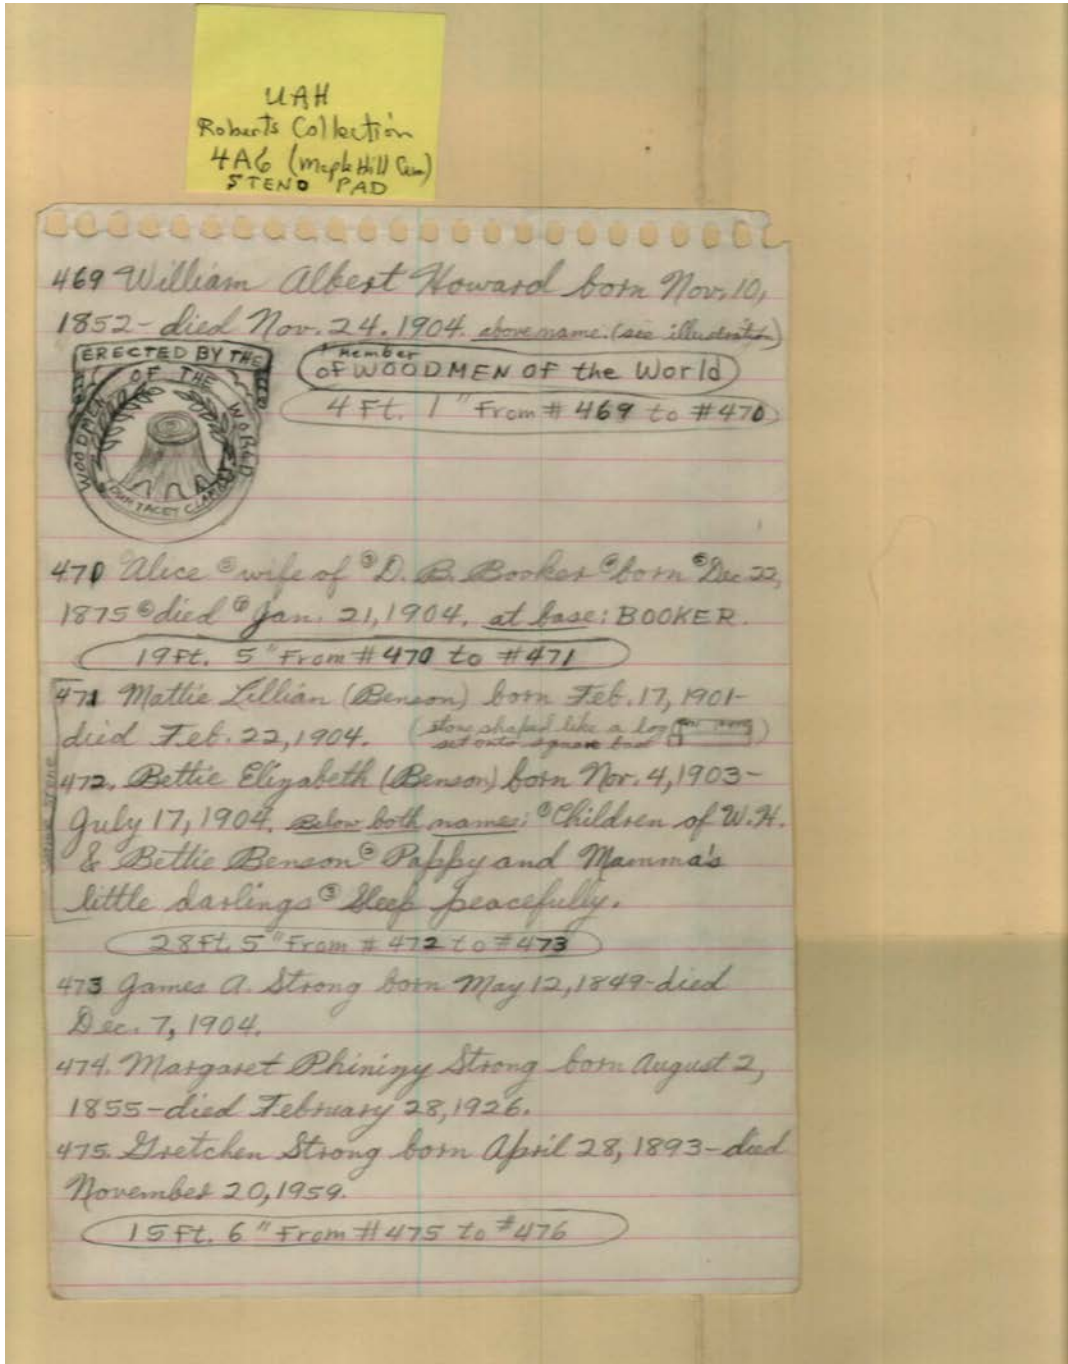 UAH
Roberts Collection
4A6 (Maple Hill Cem)
STENO PAD
469 William Albert Howard born Nov. 10,
1852 - died Nov. 24. 1904. above name. (see illustration)
ERECTED BY THE
WOODMEN OF THE WORLD
DUM TACET CLAMAT
Member
of WOODMEN OF the World
4 Ft. 1" From # 469 to #470
470 Alice ② wife of ③ D. B. Booker ④ born ⑤ Dec 22,
1875 ⑥ died ⑦ Jan. 21, 1904. at base: BOOKER.
19 Ft. 5" From # 470 to #471
471 Mattie Lillian (Benson) born Feb. 17, 1901-
died Feb. 22, 1904. (stone shaped like a log
set onto square base)
472. Bettie Elizabeth (Benson) born Nov. 4, 1903-
July 17, 1904. Below both names: ① Children of W. H.
& Bettie Benson ② Pappy and Mamma's
little darlings ③ Sleep peacefully.
same stone
28 Ft. 5" From # 472 to #473
473 James A. Strong born May 12, 1849-died
Dec. 7, 1904.
474. Margaret Phinizy Strong born August 2,
1855-died February 28, 1926.
475. Gretchen Strong born April 28, 1893-died
November 20, 1959.
15 Ft. 6" From #475 to #476